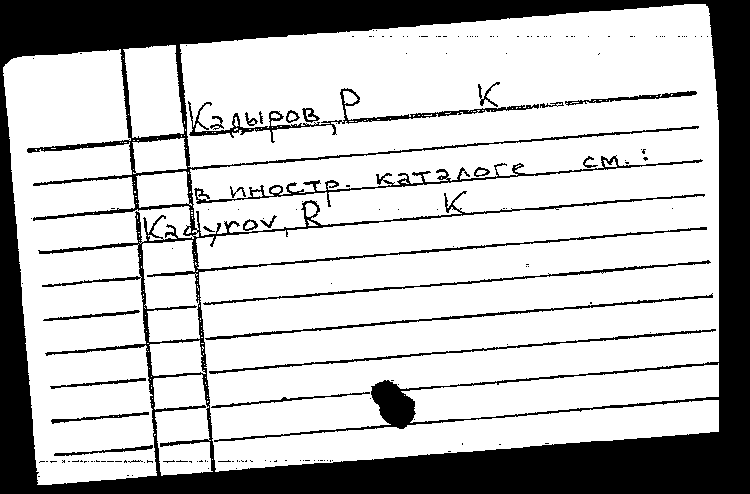 Кадыров, Р К
в иностр. каталоге см.:
Kadyrov, R K